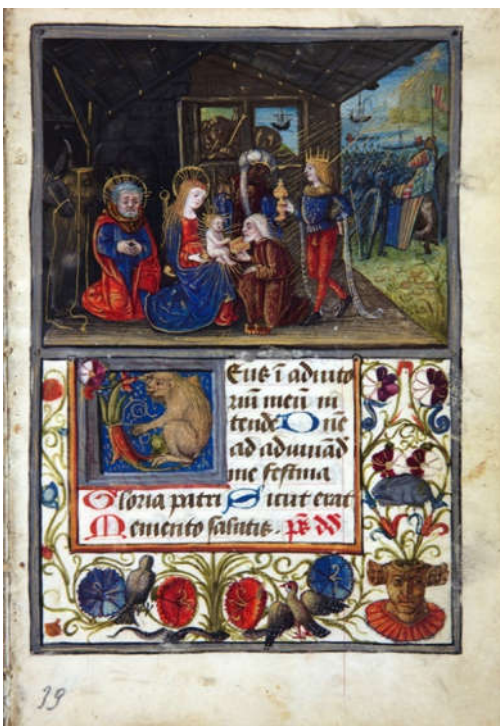 Deus ī adiuto
riū meū in
tende Dñe
ad adiuuād
me festina
Gloria patri Sicut erat
Memento salutis.
39